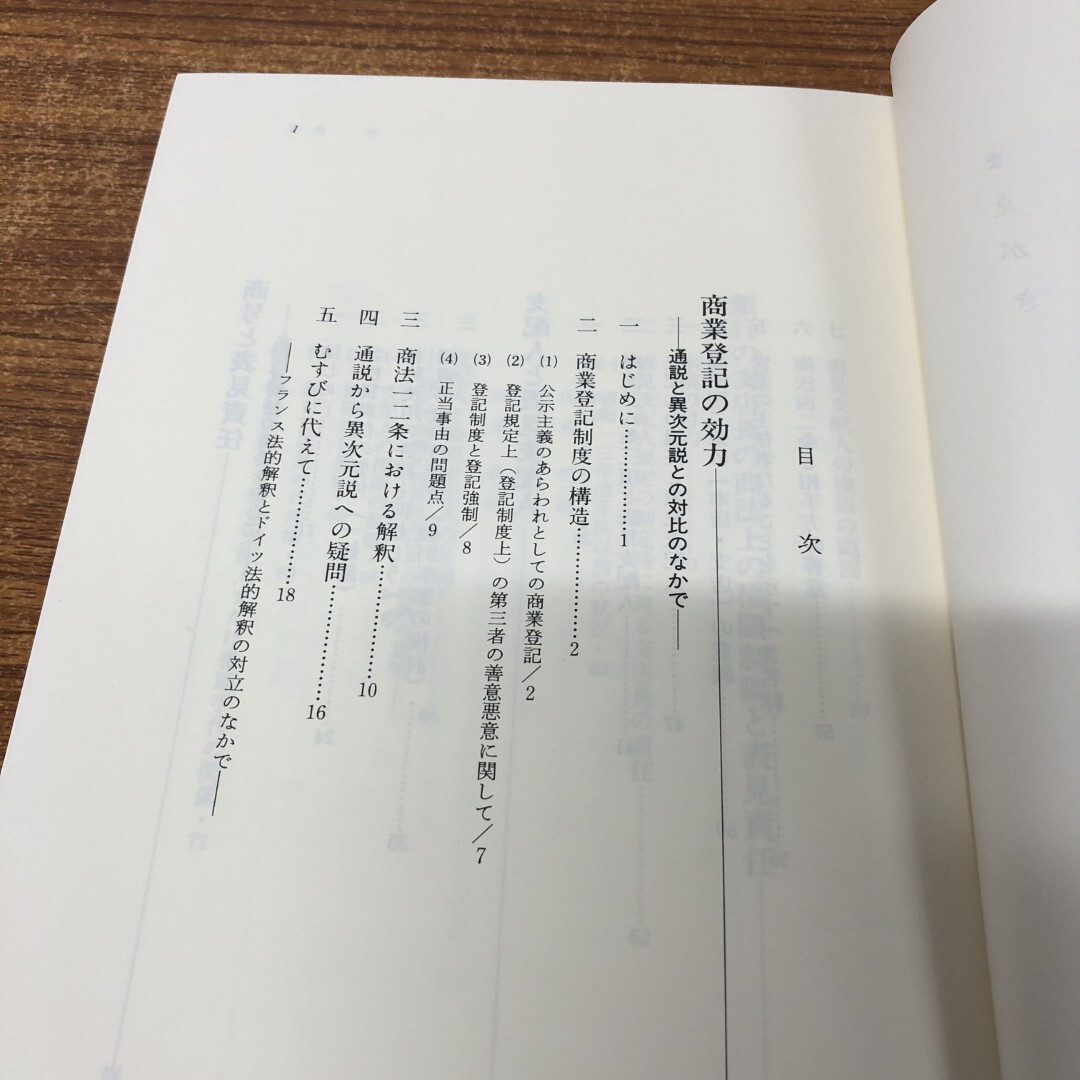 まえがき
目次
商業登記の効力
――通説と異次元説との対比のなかで――
一 はじめに…………1
二 商業登記制度の構造…………2
(1) 公示主義のあらわれとしての商業登記/2
(2) 登記規定上(登記制度上)の第三者の善意悪意に関して/7
(3) 登記制度と登記強制/8
(4) 正当事由の問題点/9
三 商法一二条における解釈…………10
四 通説から異次元説への疑問…………16
五 むすびに代えて…………18
――フランス法的解釈とドイツ法的解釈の対立のなかで――
1